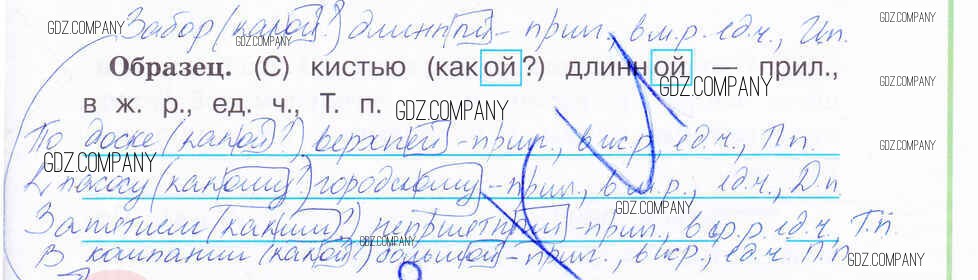 Забор (какой?) длинный - прил., в м.р. ед.ч., И.п.
GDZ.COMPANY GDZ.COMPANY GDZ.COMPANY
Образец. (С) кистью (какой?) длинной — прил.,
GDZ.COMPANY GDZ.COMPANY
в ж. р., ед. ч., Т. п. GDZ.COMPANY
По доске (какой?) верхней - прил., в ж.р., ед.ч., П.п.
GDZ.COMPANY GDZ.COMPANY
К насосу (какому?) городскому - прил., в м.р., ед.ч., Д.п.
GDZ.COMPANY GDZ.COMPANY
(каким?) неприятным - прил., в ср.р. ед.ч., Т.п.
GDZ.COMPANY
В компании (какой?) большой - прил., в ж.р., ед.ч. П.п.
GDZ.COMPANY